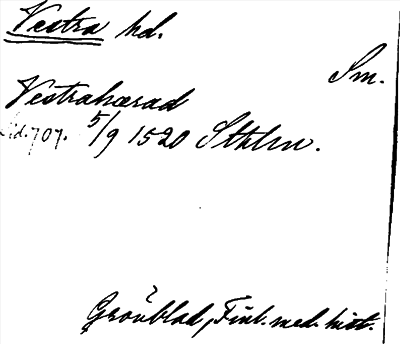 Vestra hd.
Sm.
Vestrahærad
Sid. 707. 5/9 1520 Sthlm.
Grönblad, Finl. med. hist.